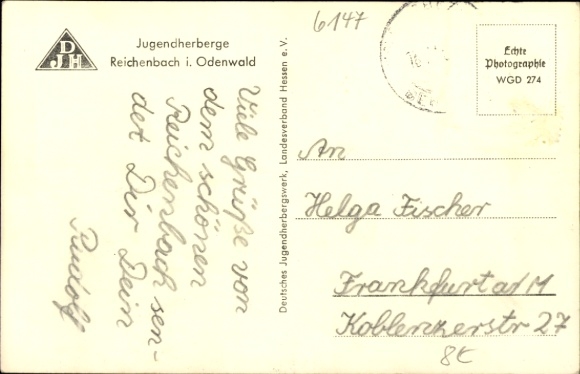 DJH
Jugendherberge
Reichenbach i. Odenwald
6147
Echte
Photographie
WGD 274
Viele Grüße von
dem schönen
Reichenbach sen-
det Dir Dein
Rudolf
Deutsches Jugendherbergswerk, Landesverband Hessen e. V.
An
Helga Fischer
Frankfurt a/M
Koblenzerstr 27
8€